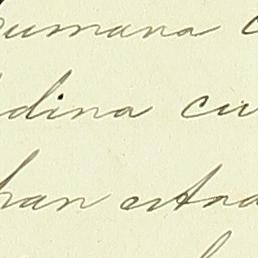 umana c
dina cu
han esta